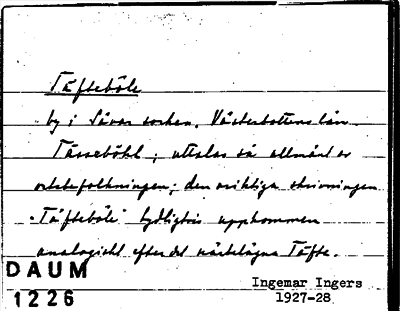 Täfteböle
by i Sävar socken, Västerbottens län
Tässeböhl; uttalas så allmänt av
ortsbefolkningen; den oriktiga skrivningen
"Täfteböle" tydligtvis uppkommen
analogiskt efter det närbelägna Täfte.
DAUM
1226
Ingemar Ingers
1927-28